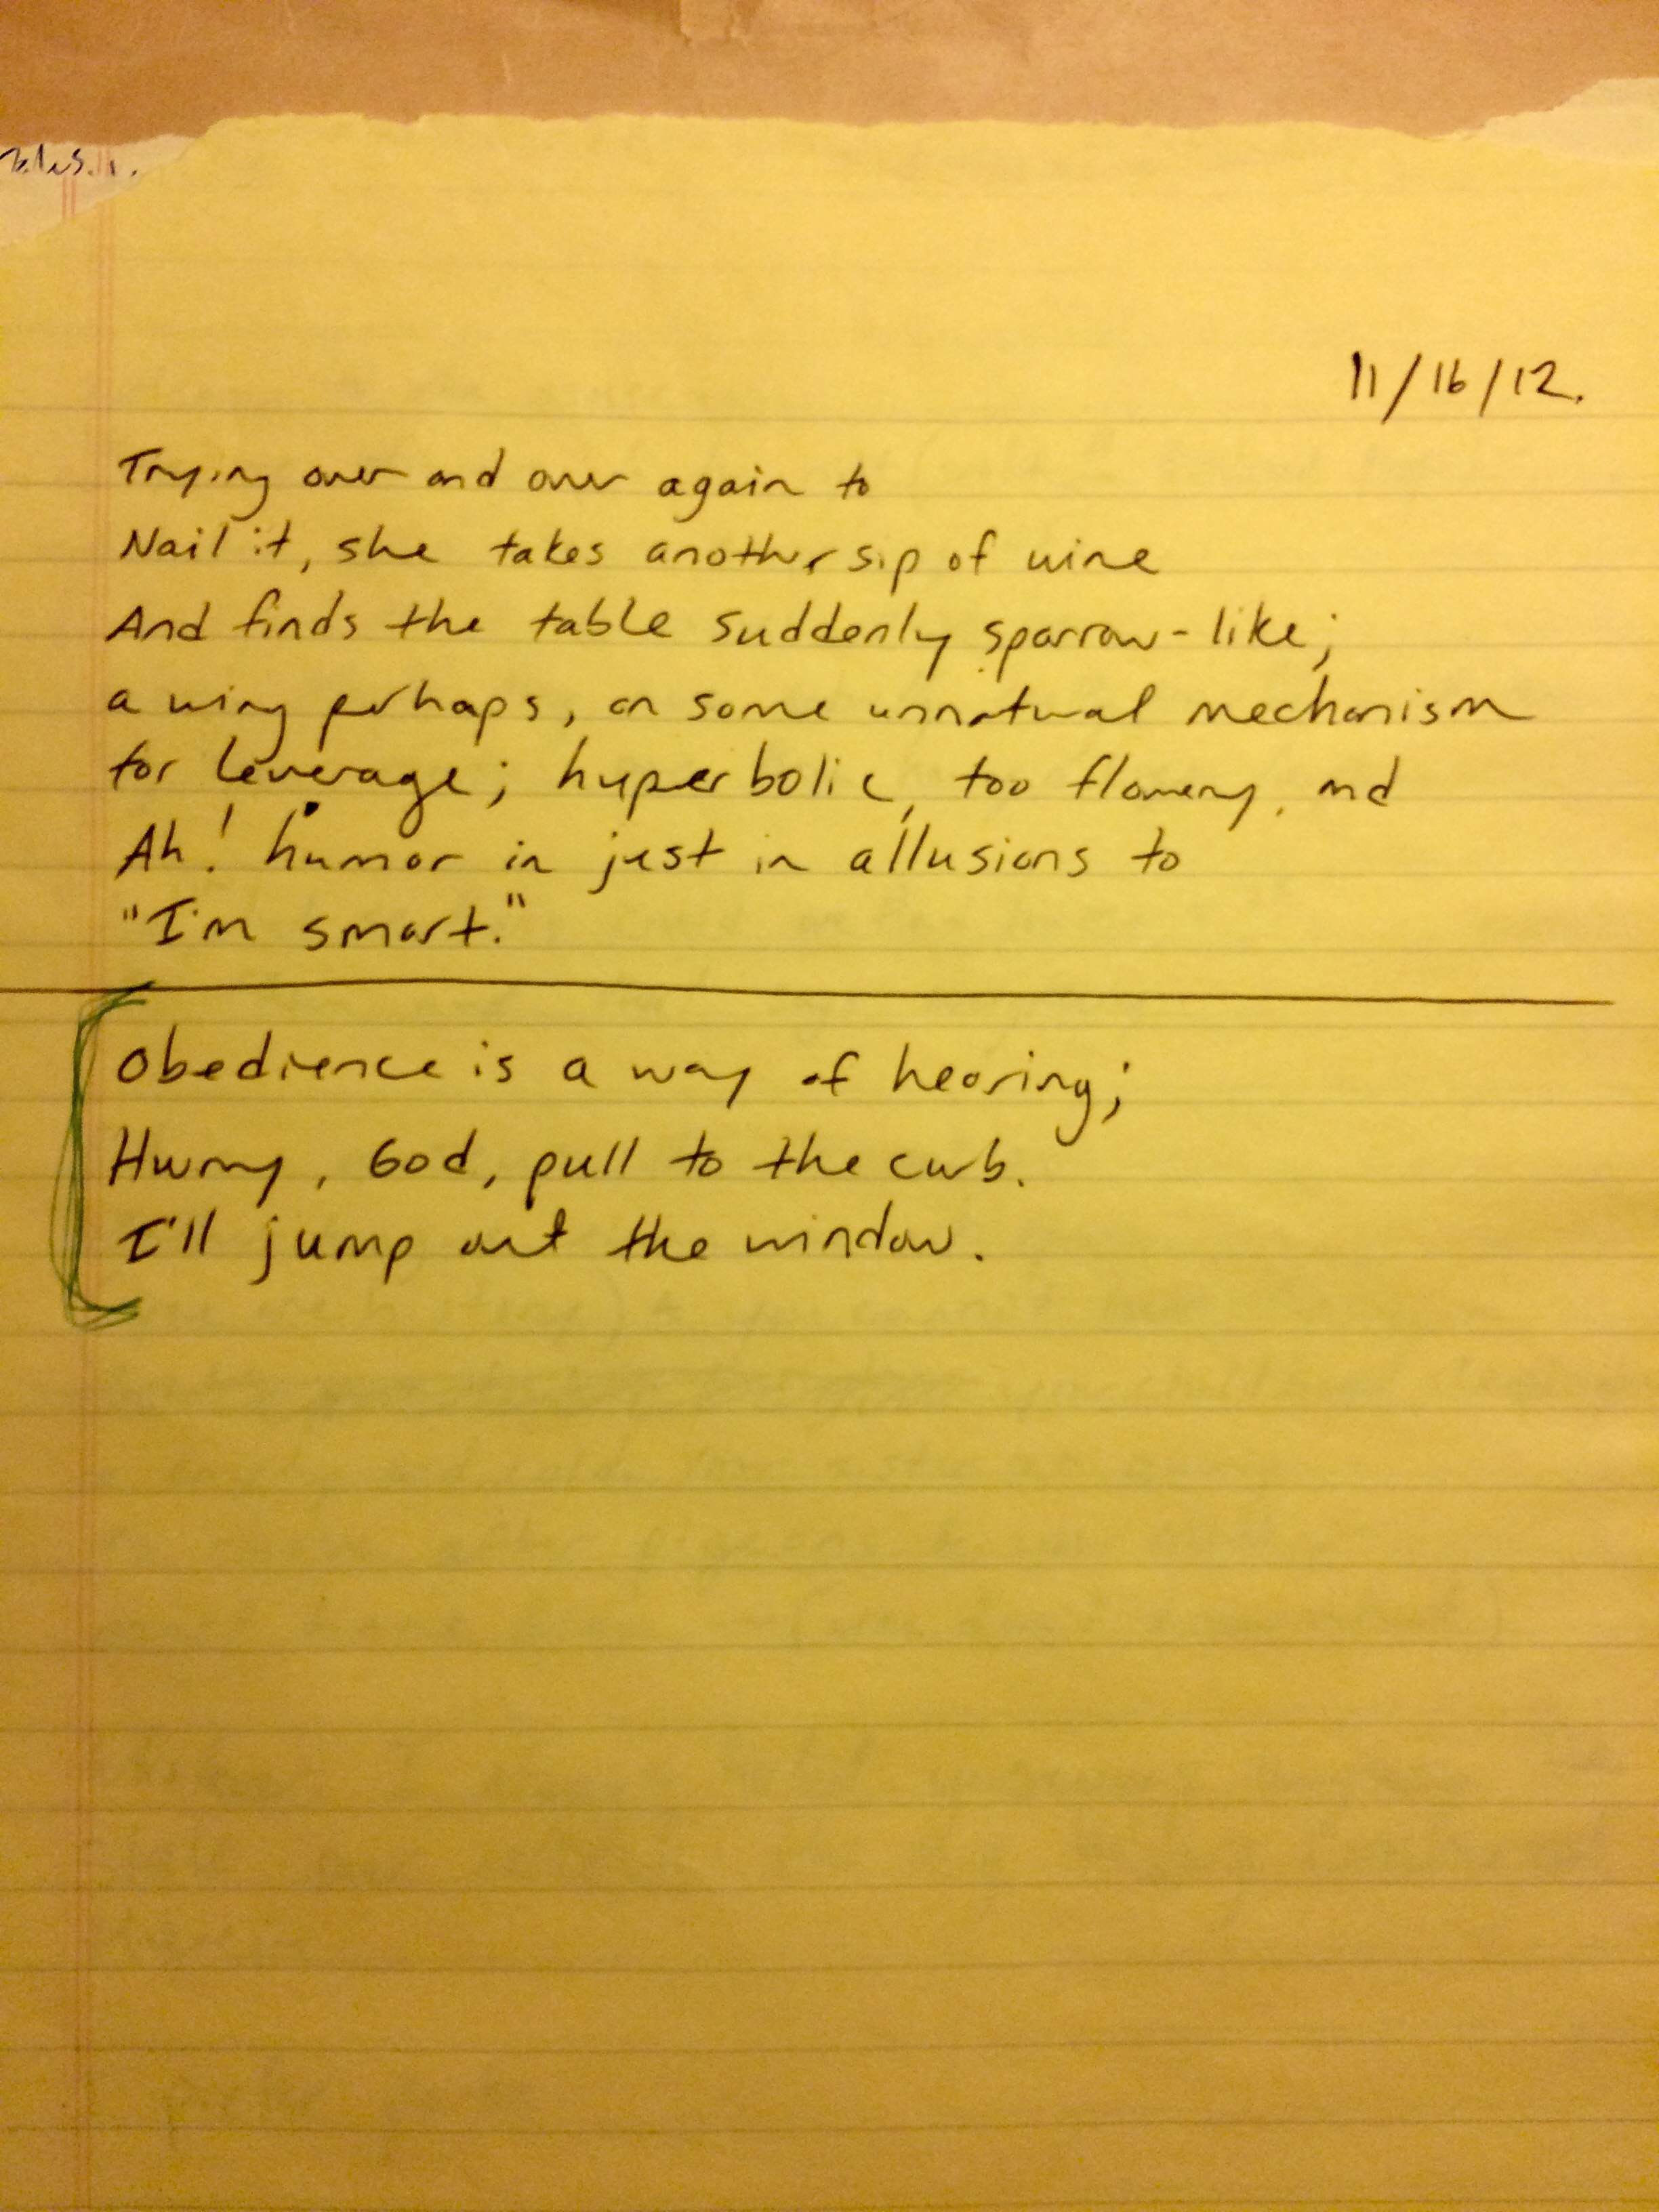 11/16/12.
Trying over and over again to
Nail it, she takes another sip of wine
And finds the table suddenly sparrow-like;
a wing perhaps, or some unnatural mechanism
for leverage; hyperbolic, too flowery, and
Ah! humor in jest in allusions to
"I'm smart."
Obedience is a way of hearing;
Hurry, God, pull to the curb.
I'll jump out the window.